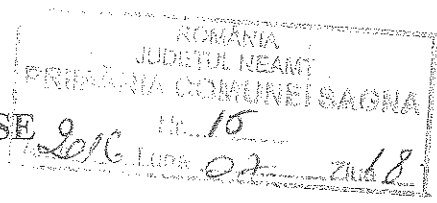 ROMÂNIA
JUDEŢUL NEAMŢ
PRIMĂRIA COMUNEI SAGNA
Nr. 15
SE 2016 Luna 07 Ziua 18